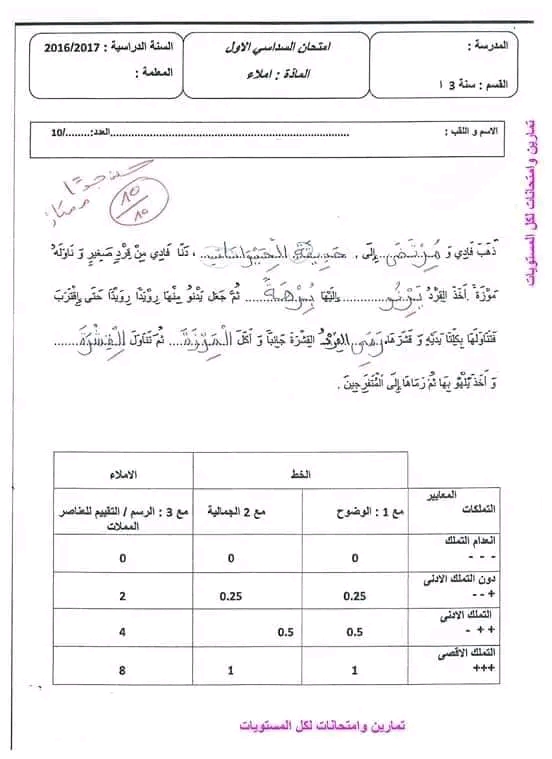 المدرسة :
القسم : سنة 3 ا
امتحان السداسي الاول
المادة : املاء
السنة الدراسية : 2016/2017
المعلمة :
الاسم و اللقب : ............................................................العدد:......../10
حسن جدّا
ممتاز
10
10
ذَهَبَ فَادِي وَ مُرْتَضَى إِلَى حَدِيقَةِ الْحَيَوَانَاتِ ، دَنَا فَادِي مِنْ قِرْدٍ صَغِيرٍ وَ نَاوَلَهُ
مَوْزَةً. أَخَذَ القِرْدُ يَرْنُو إِلَيْهَا بُرْهَةً ثُمَّ جَعَلَ يَدْنُو مِنْهَا رُوَيْدًا رُوَيْدًا حَتَّى اِقْتَرَبَ
فَتَنَاوَلَهَا بِكِلْتَا يَدَيْهِ وَ قَشَّرَهَا. رَمَى القِرْدُ القِشْرَةَ جَانِبًا وَ أَكَلَ الْمَوْزَةَ ثُمَّ تَنَاوَلَ الْقِشْرَةَ
وَ أَخَذَ يَلْهُو بِهَا ثُمَّ رَمَاهَا إِلَى الْمُتَفَرِّجِينَ .
الخط الاملاء
المعايير
التملكات
مع 1 : الوضوح مع 2 الجمالية مع 3 : الرسم / التقييم للعناصر
المملات
انعدام التملك
- - -
0 0 0
دون التملك الادنى
+ - -
0.25 0.25 2
التملك الادنى
+ + -
0.5 0.5 4
التملك الاقصى
+++
1 1 8
تمارين وامتحانات لكل المستويات
تمارين وامتحانات لكل المستويات